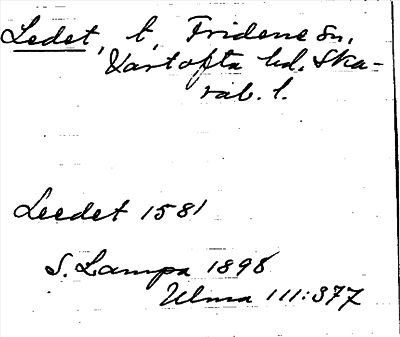 Ledet, t, Fridene sn,
Vartofta hd. Ska-
rab. l.
Leedet 1581
S. Lampa 1896
Ulma 111:377